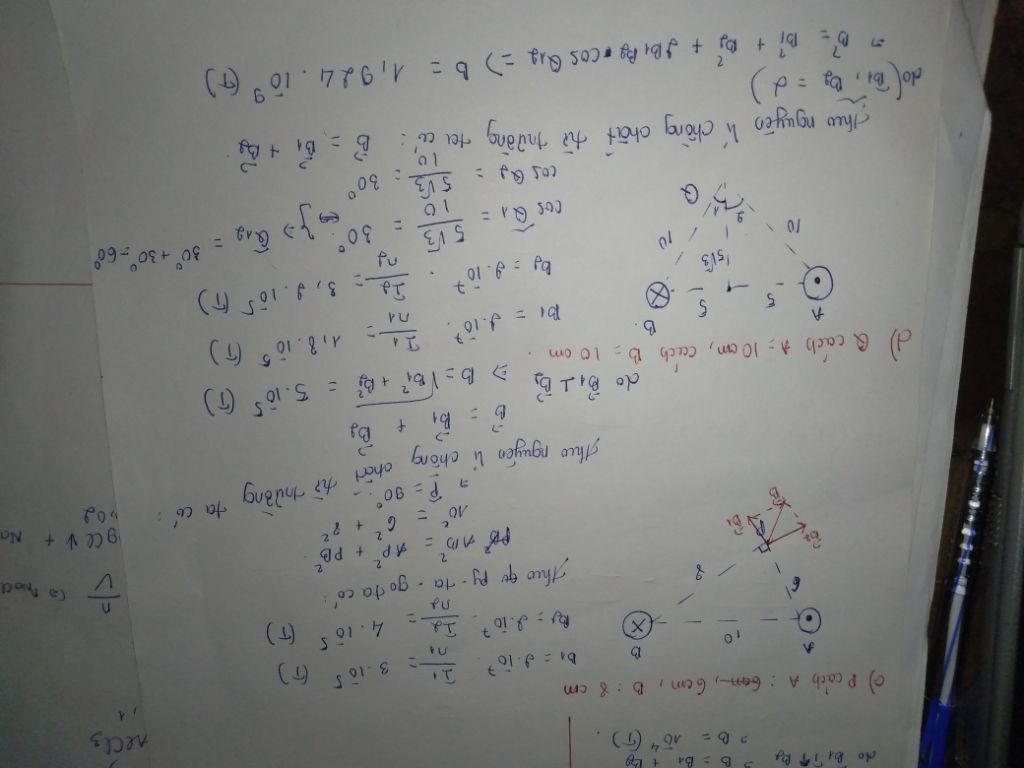 do B₁ ⇈ B₂ ⇒ B = B₁ + B₂
⇒ B = 10⁻⁴ (T).
c) P cách A : 6cm, B : 8 cm
A
10
B
6
8
P
B₁ = 2.10⁻⁷. I₁/r₁ = 3.10⁻⁵ (T)
B₂ = 2.10⁻⁷. I₂/r₂ = 4.10⁻⁵ (T)
Theo Py-ta-go ta có:
AB² = AP² + PB²
10² = 6² + 8²
⇒ P̂ = 90°.
Theo nguyên lí chồng chất từ trường ta có:
B⃗ = B⃗₁ + B⃗₂
do B⃗₁ ⊥ B⃗₂ ⇒ B = √(B₁² + B₂²) = 5.10⁻⁵ (T)
d) Q cách A = 10cm, cách B = 10cm.
A
5
5
B.
10
5√3
10
2
1
Q
B₁ = 2.10⁻⁷. I₁/r₁ = 1,8.10⁻⁵ (T)
B₂ = 2.10⁻⁷. I₂/r₂ = 3,2.10⁻⁵ (T)
cos Q₁ = 5√3/10 = 30°
cos Q₂ = 5√3/10 = 30°
} ⇒ Q̂₁₂ = 30° + 30° = 60°
Theo nguyên lí chồng chất từ trường ta có: B⃗ = B⃗₁ + B⃗₂.
do (B⃗₁, B⃗₂ = α)
⇒ B² = B₁² + B₂² + 2B₁B₂.cos Q₁₂ ⇒ B = 1,924.10⁻⁹ (T)
AlCl₃
n
V